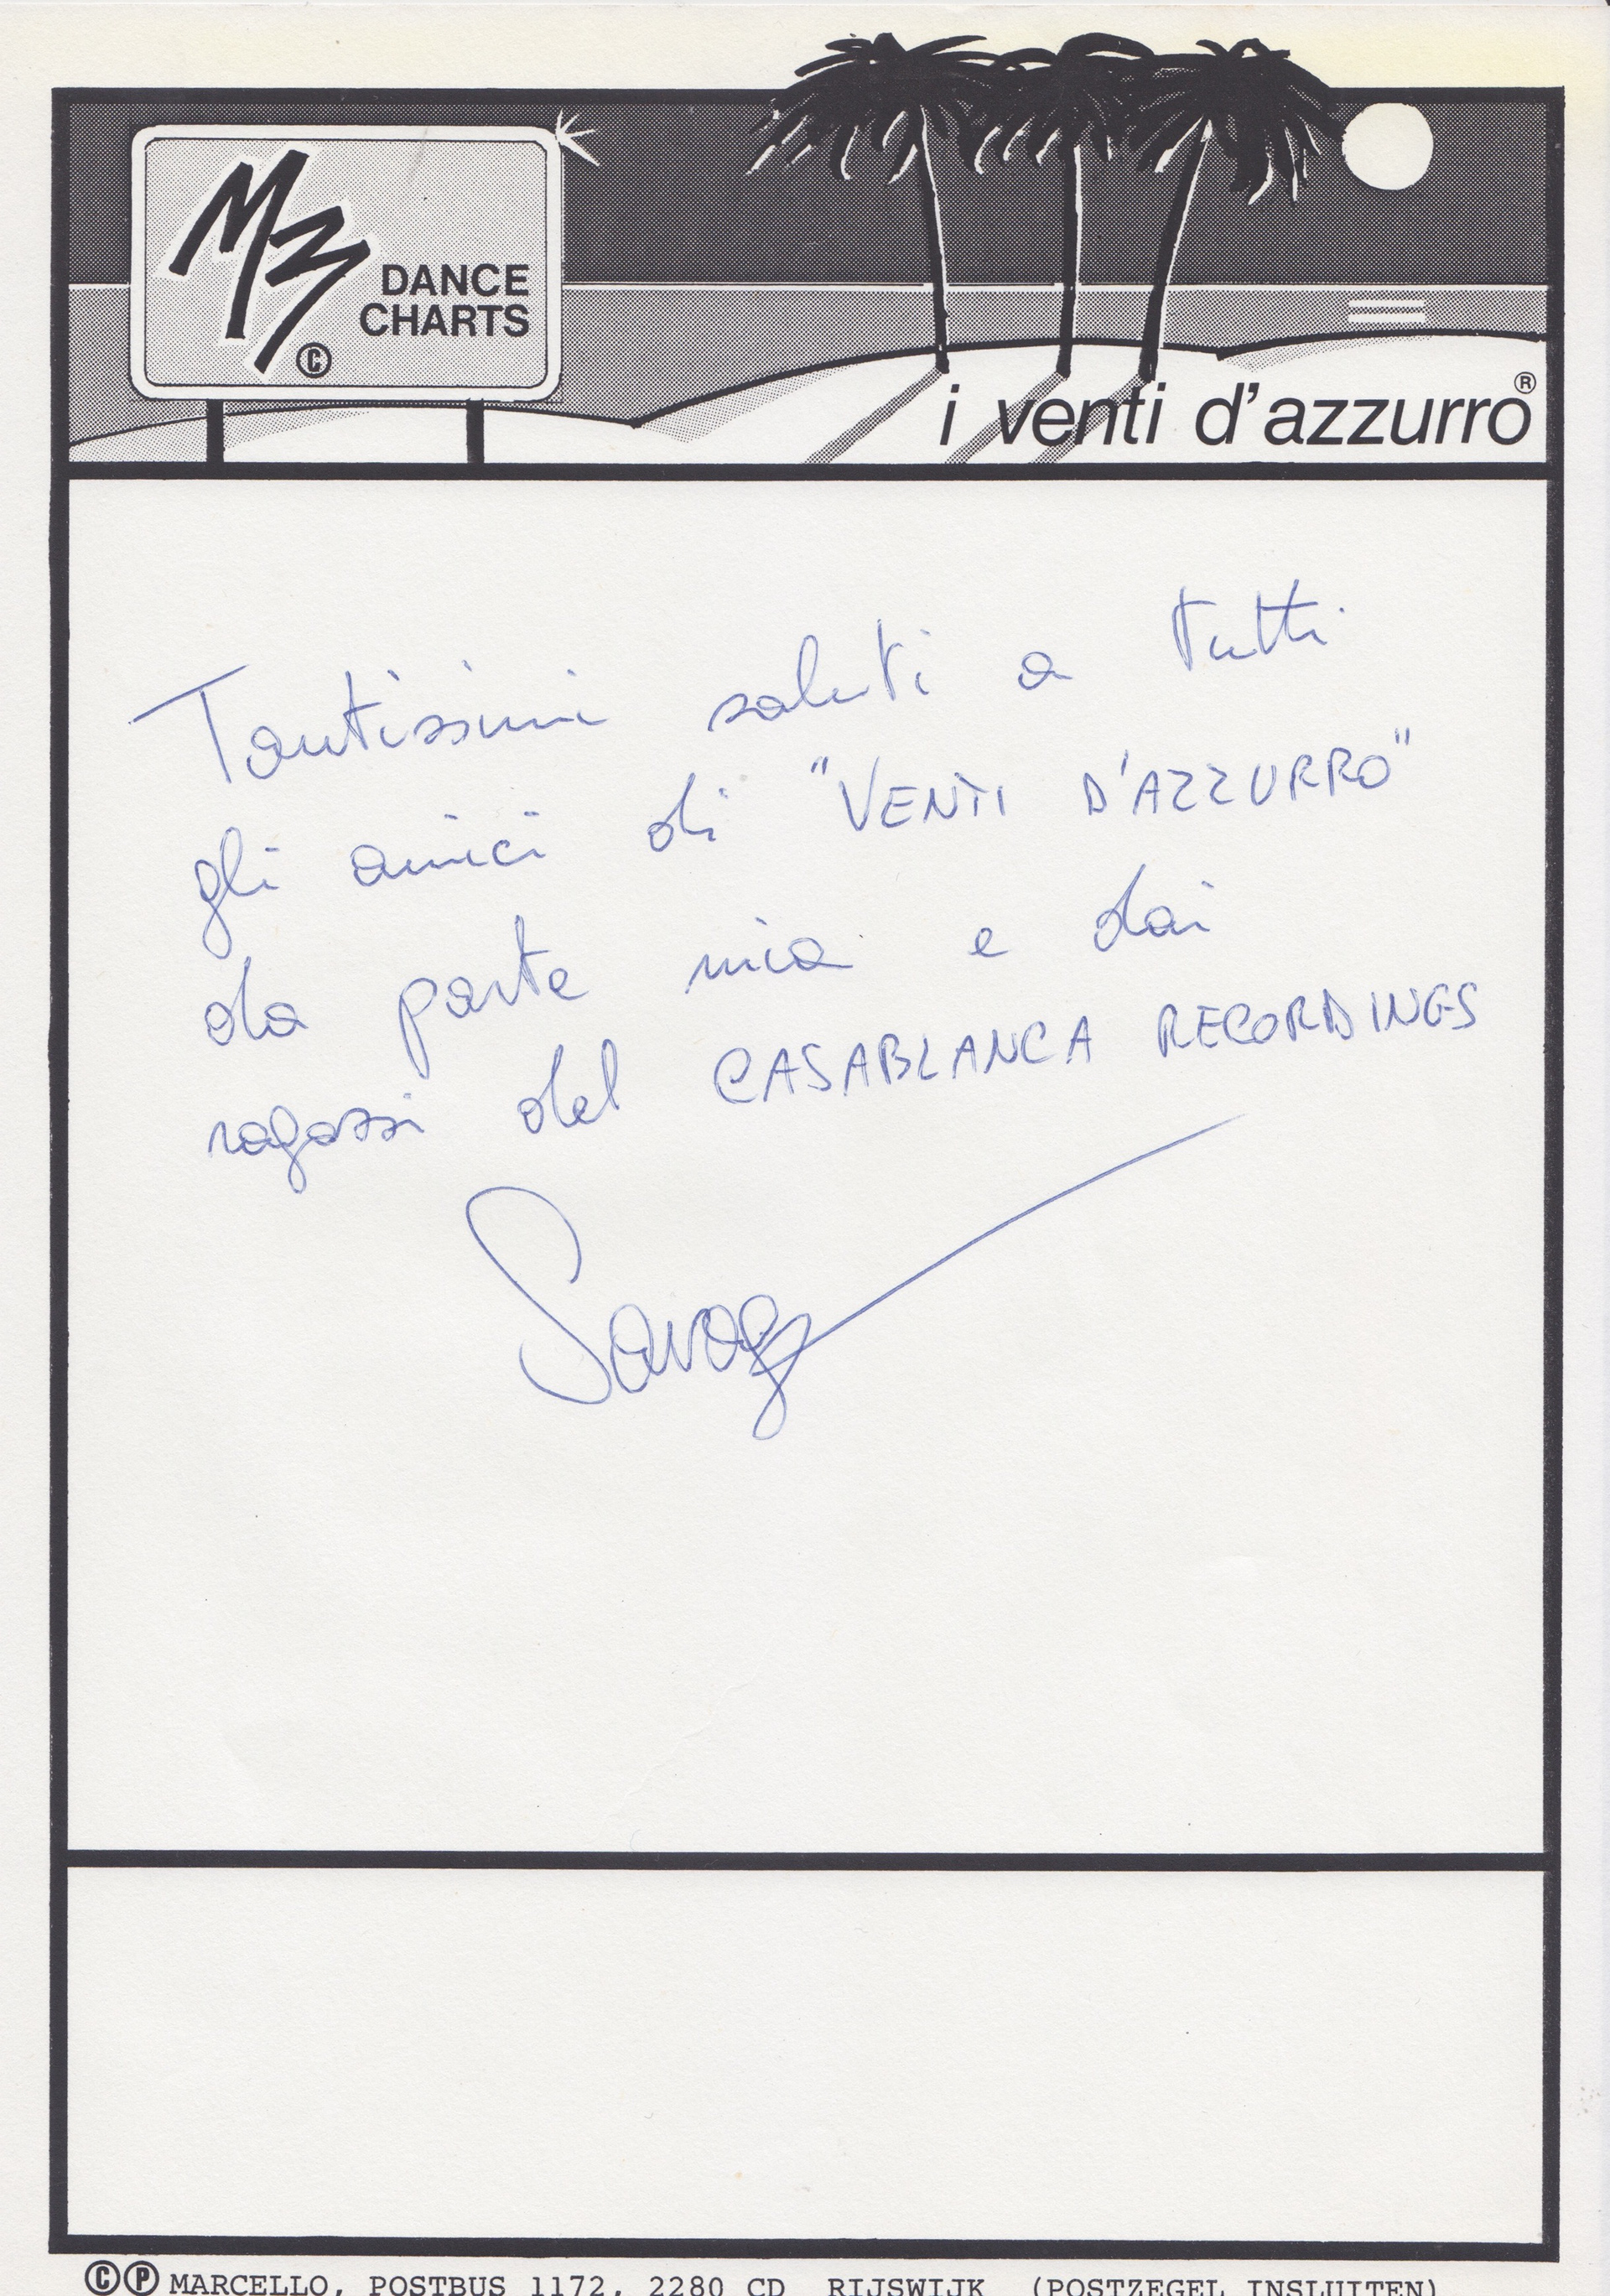 MZ
DANCE
CHARTS
©
i venti d'azzurro ®
Tantissimi saluti a tutti
gli amici di "VENTI D'AZZURRO"
da parte mia e dai
ragazzi del CASABLANCA RECORDINGS
Savage
©℗ MARCELLO, POSTBUS 1172, 2280 CD RIJSWIJK (POSTZEGEL INSLUITEN)